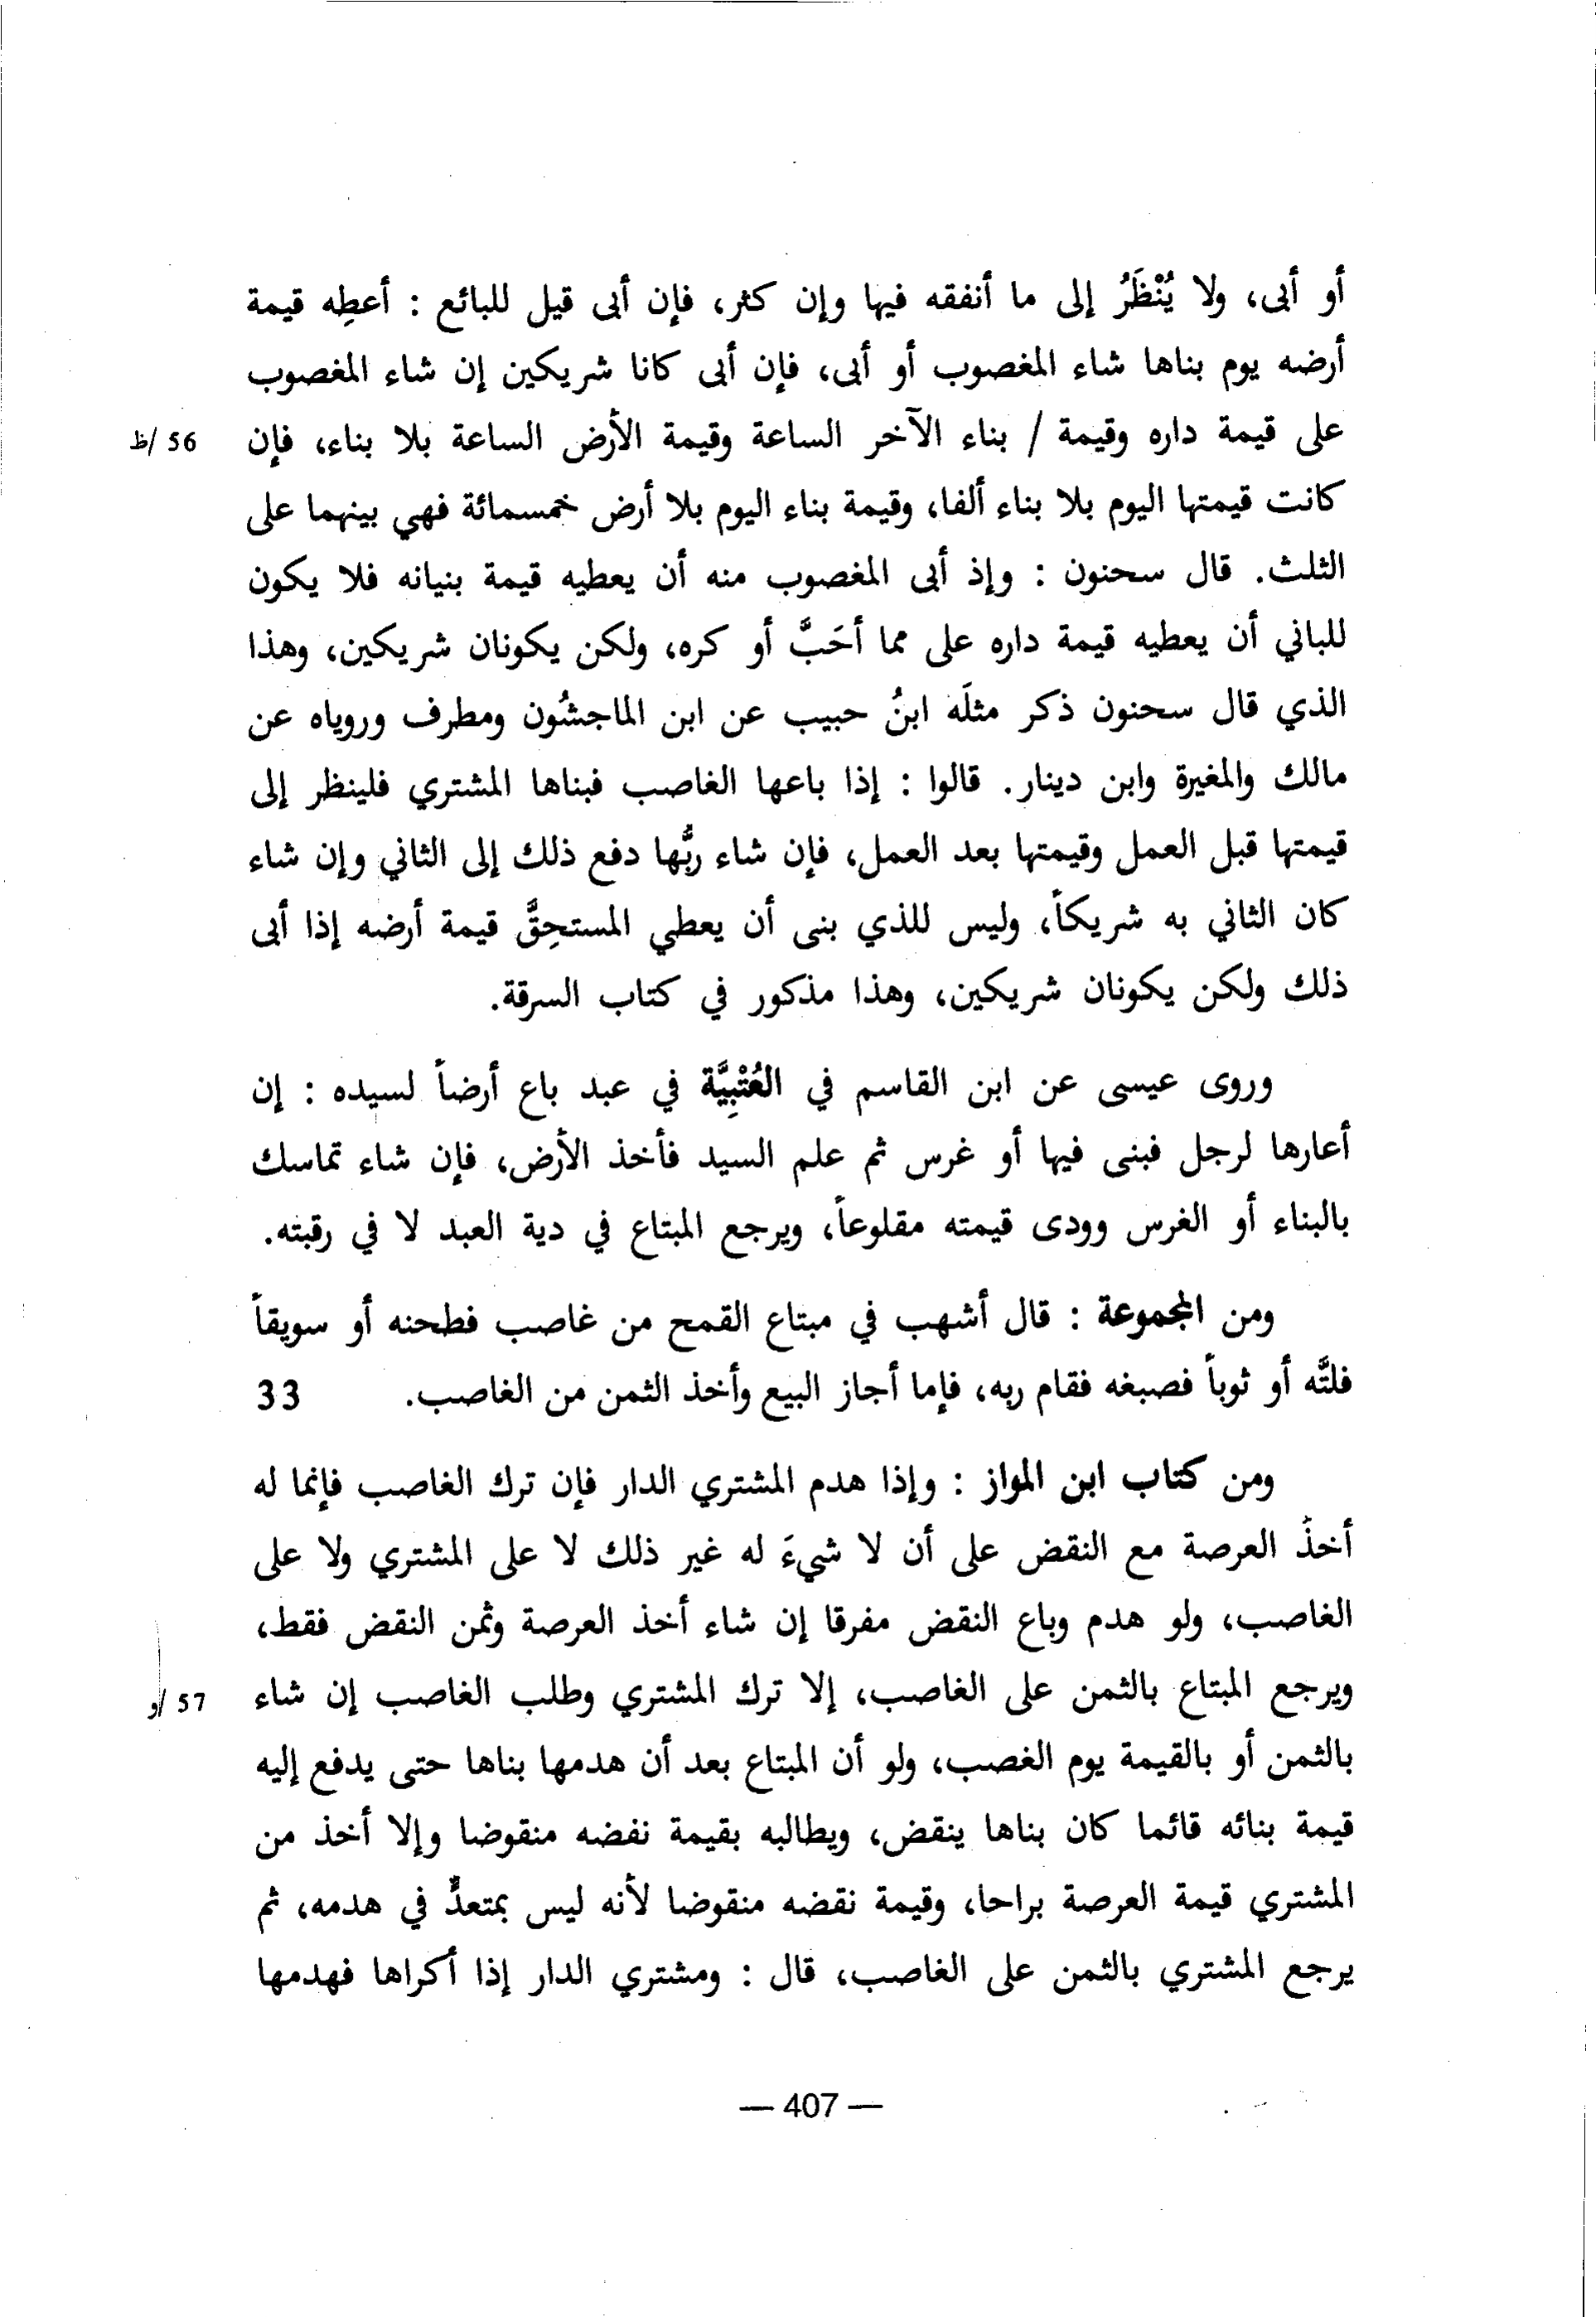 أو أبى، ولا يُنْظَرُ إلى ما أنفقه فيها وإن كثر، فإن أبى قيل للبائع : أعطِه قيمة
أرضه يوم بناها شاء المغصوب أو أبى، فإن أبى كانا شريكين إن شاء المغصوب
على قيمة داره وقيمة / بناء الآخر الساعة وقيمة الأرض الساعة بلا بناء، فإن
56 /ظ
كانت قيمتها اليوم بلا بناء ألفا، وقيمة بناء اليوم بلا أرض خمسمائة فهي بينهما على
الثلث. قال سحنون : وإذ أبى المغصوب منه أن يعطيه قيمة بنيانه فلا يكون
للباني أن يعطيه قيمة داره على مما أحَبَّ أو كره، ولكن يكونان شريكين، وهذا
الذي قال سحنون ذكر مثلَه ابنُ حبيب عن ابن الماجشُون ومطرف وروياه عن
مالك والمغيرة وابن دينار. قالوا : إذا باعها الغاصب فبناها المشتري فلينظر إلى
قيمتها قبل العمل وقيمتها بعد العمل، فإن شاء ربُّها دفع ذلك إلى الثاني وإن شاء
كان الثاني به شريكاً، وليس للذي بنى أن يعطي المستحِقَّ قيمة أرضه إذا أبى
ذلك ولكن يكونان شريكين، وهذا مذكور في كتاب السرقة.
وروى عيسى عن ابن القاسم في العُتْبِيَّة في عبد باع أرضاً لسيده : إن
أعارها لرجل فبنى فيها أو غرس ثم علم السيد فأخذ الأرض، فإن شاء تماسك
بالبناء أو الغرس وودى قيمته مقلوعاً، ويرجع المبتاع في دية العبد لا في رقبته.
ومن المجموعة : قال أشهب في مبتاع القمح من غاصب فطحنه أو سويقاً
فلتَّه أو ثوباً فصبغه فقام ربه، فإما أجاز البيع وأخذ الثمن من الغاصب. 33
ومن كتاب ابن المواز : وإذا هدم المشتري الدار فإن ترك الغاصب فإنما له
أخذُ العرصة مع النقض على أن لا شيءَ له غير ذلك لا على المشتري ولا على
الغاصب، ولو هدم وباع النقض مفرقا إن شاء أخذ العرصة وثمن النقض فقط،
ويرجع المبتاع بالثمن على الغاصب، إلا ترك المشتري وطلب الغاصب إن شاء
57 /و
بالثمن أو بالقيمة يوم الغصب، ولو أن المبتاع بعد أن هدمها بناها حتى يدفع إليه
قيمة بنائه قائما كان بناها ينقض، ويطالبه بقيمة نفضه منقوضا وإلا أخذ من
المشتري قيمة العرصة براحا، وقيمة نقضه منقوضا لأنه ليس بمتعدٍّ في هدمه، ثم
يرجع المشتري بالثمن على الغاصب، قال : ومشتري الدار إذا أكراها فهدمها
— 407 —